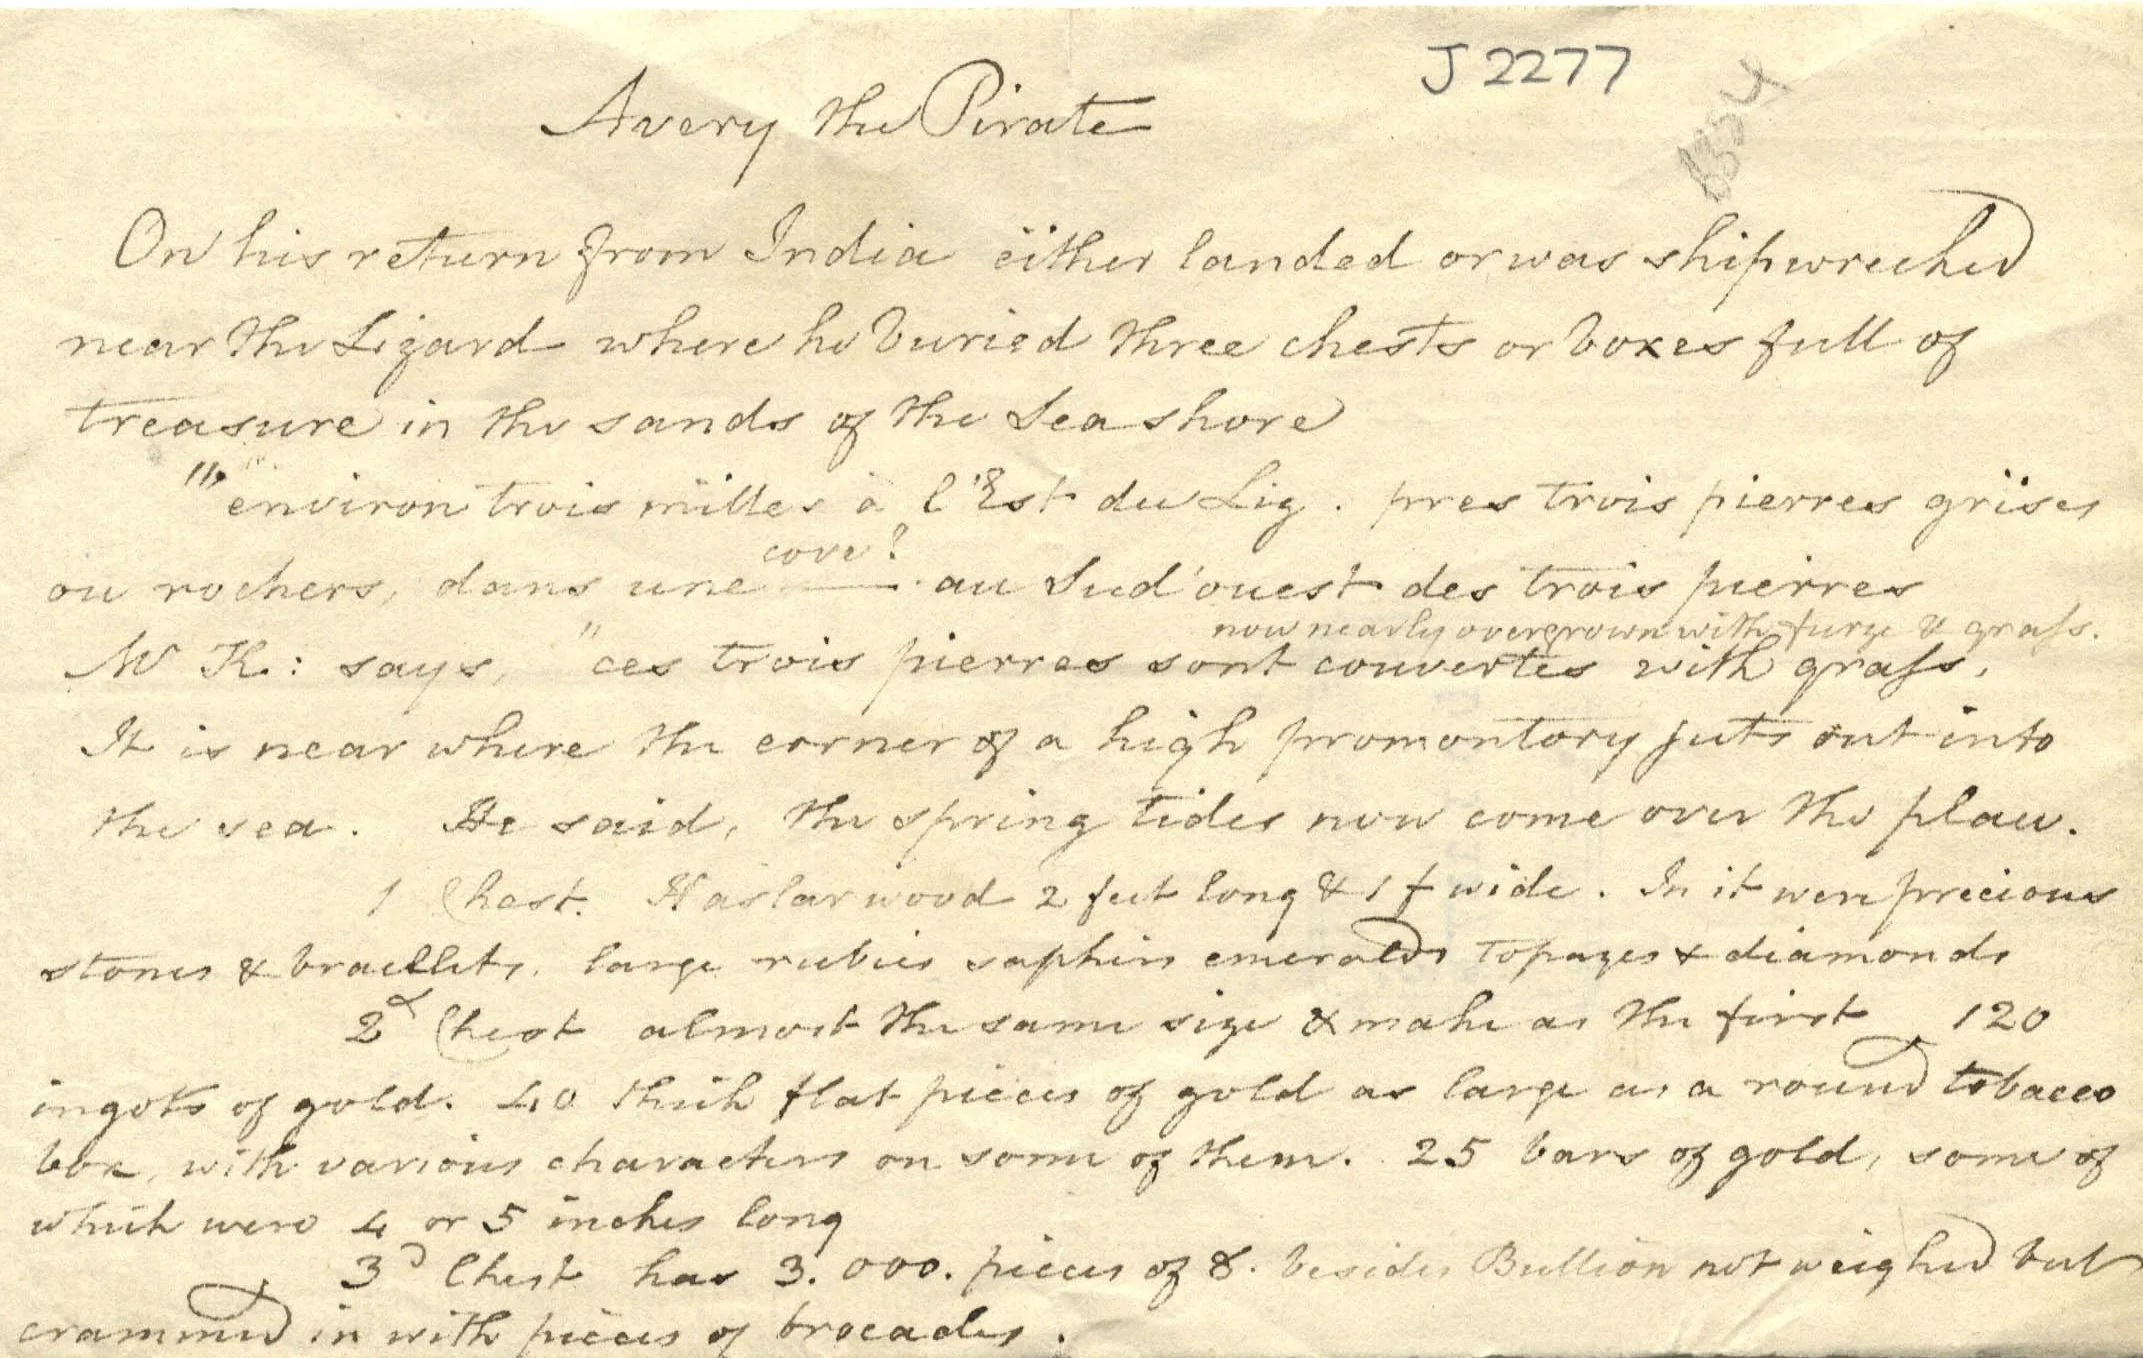 J 2277
Avery the Pirate
On his return from India either landed or was shipwrecked
near the Lizard where he buried three chests or boxes full of
treasure in the sands of the Sea shore
"environ trois milles à l'Est du Liz. pres trois pierres grises
cove?
ou rochers, dans une —— au Sud'ouest des trois pierres
now nearly overgrown with furze & grass.
Mr K: says, "ces trois pierres sont couvertes with grass,
It is near where the corner of a high promontory juts out into
the sea. He said, the spring tides now come over the place.
1 Chest. Haslar wood 2 feet long & 1 f wide. In it were precious
stones & bracellets. large rubies saphirs emeralds topazes & diamonds
2d Chest almost the same size & make as the first 120
ingots of gold. 40 thick flat pieces of gold as large as a round tobacco
box, with various characters on some of them. 25 bars of gold, some of
which were 4 or 5 inches long
3d Chest has 3.000. pieces of 8. besides Bullion not weighed but
crammed in with pieces of brocades.